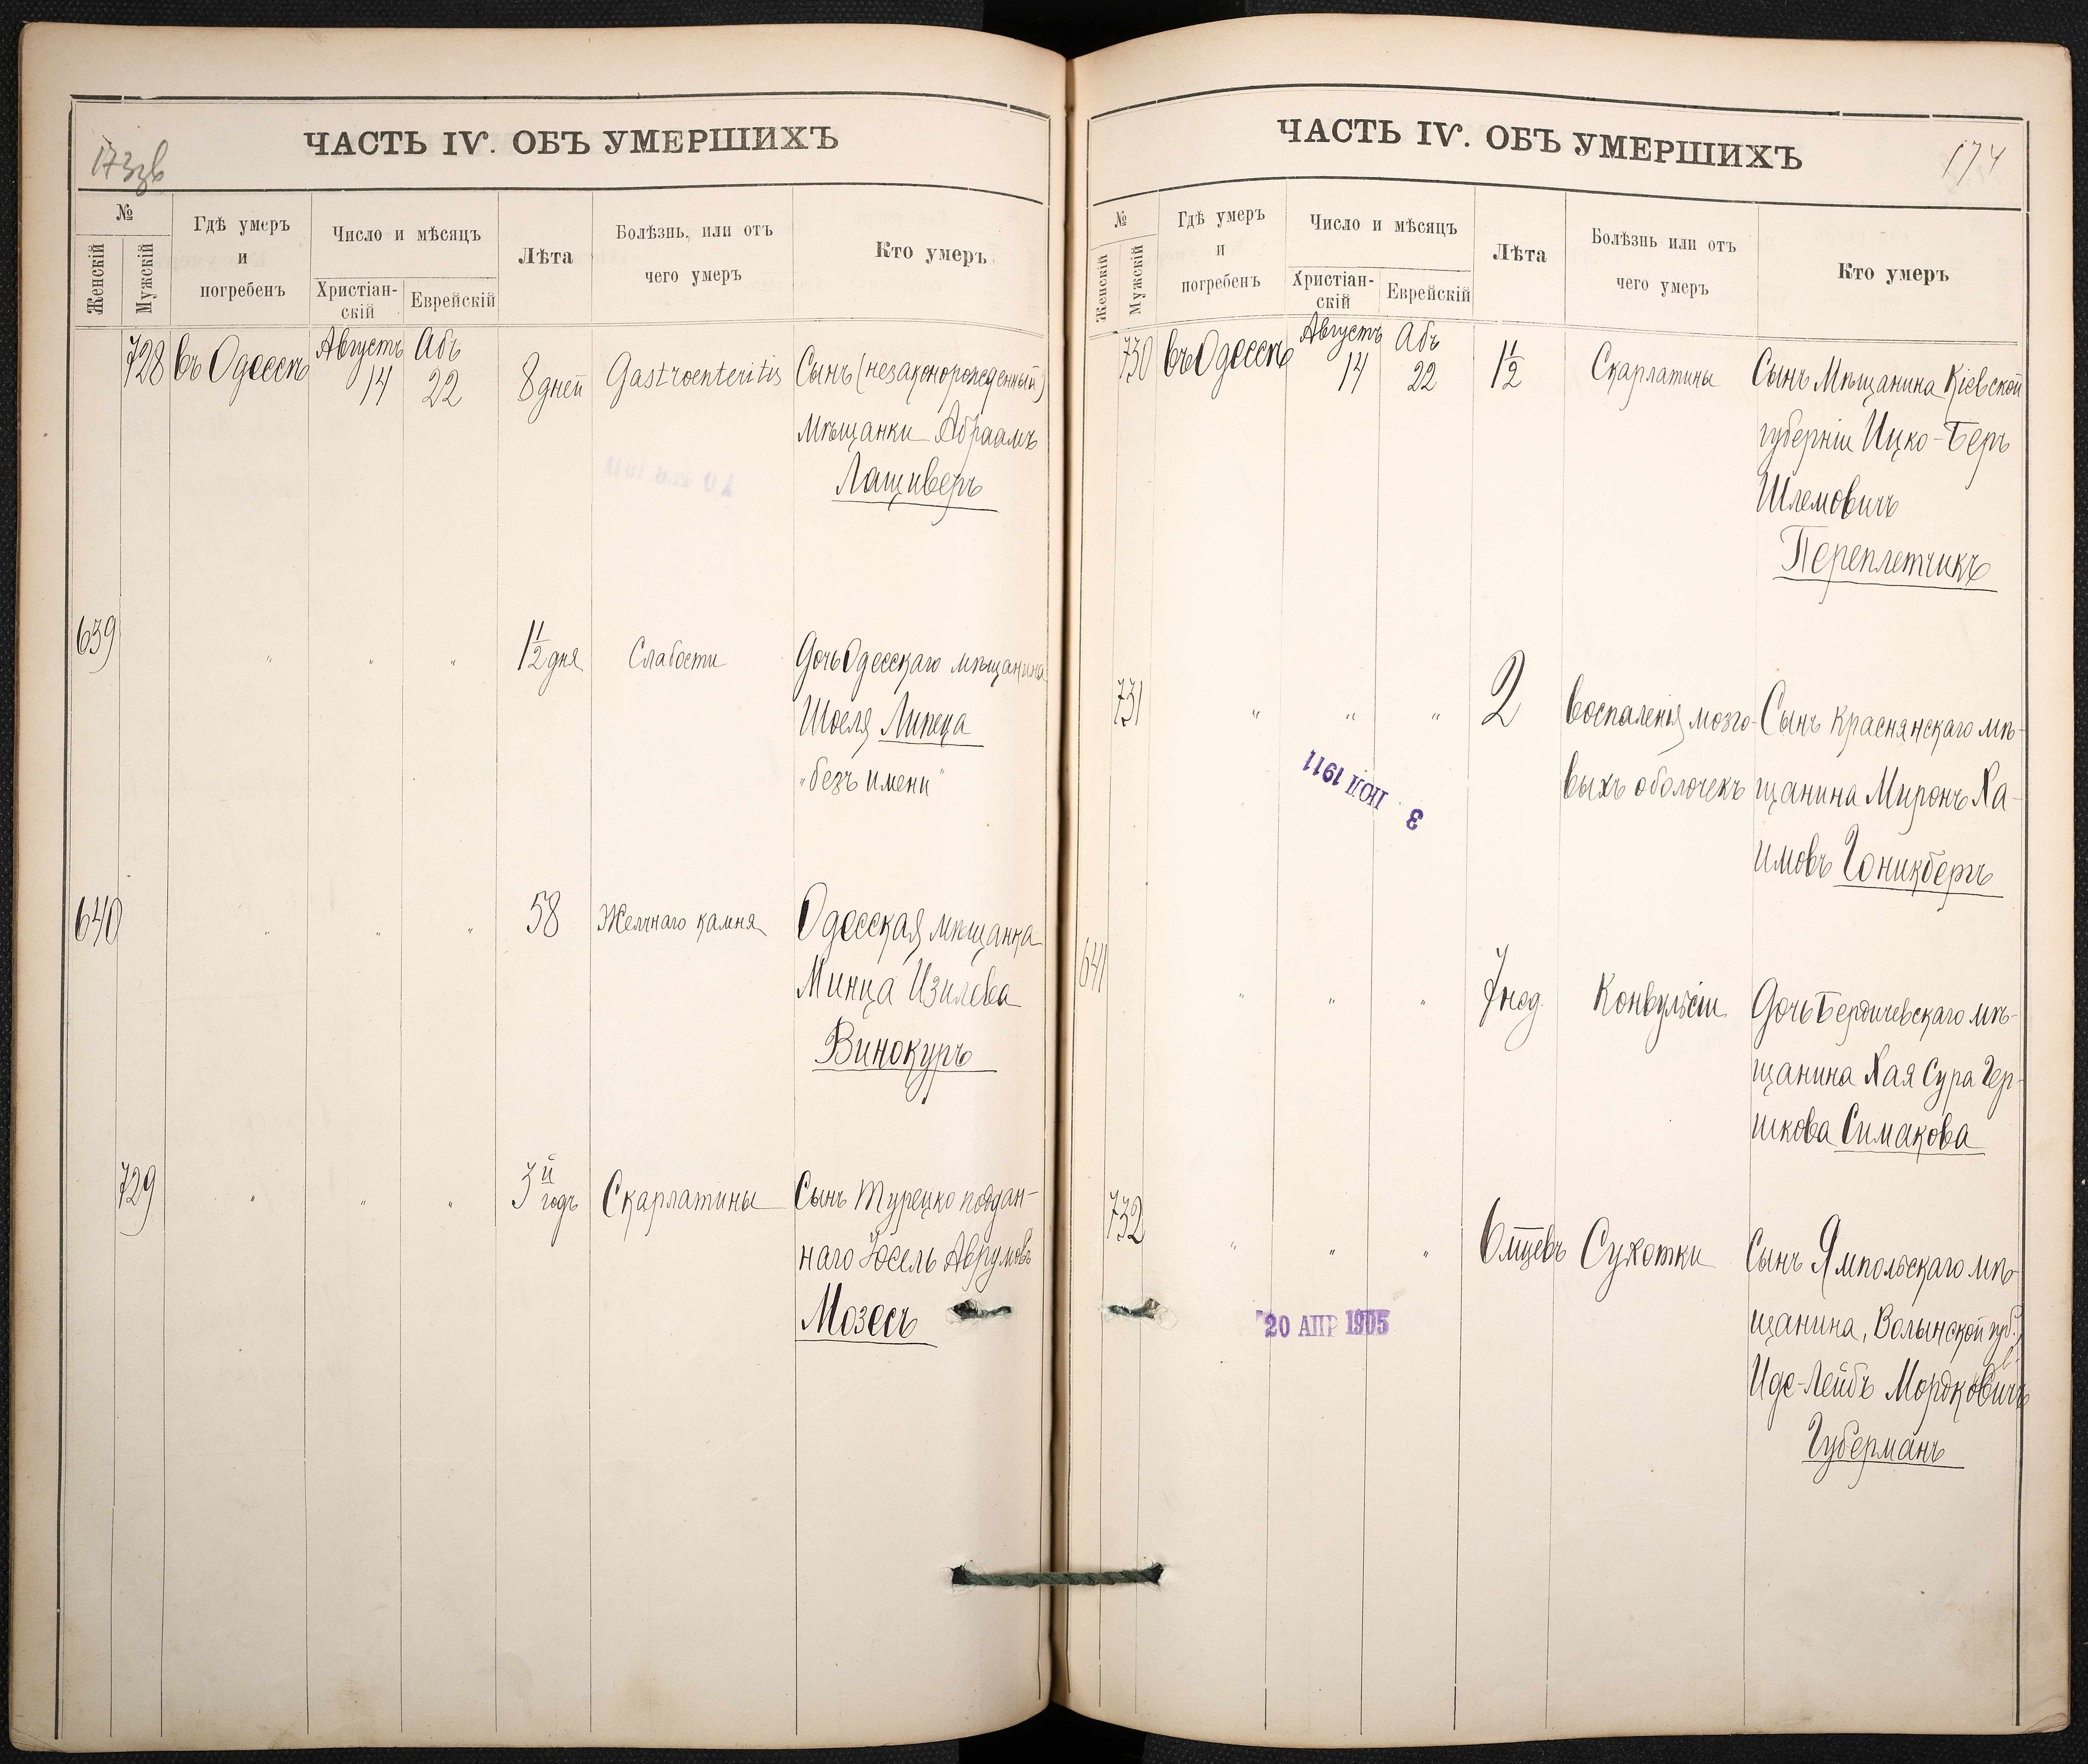 173зв
ЧАСТЬ IV. ОБЪ УМЕРШИХЪ
№
Женскій
Мужскій
Гдѣ умеръ
и
погребенъ
Число и мѣсяцъ
Христіан-
скій
Еврейскій
Лѣта
Болѣзнь, или отъ
чего умеръ
Кто умеръ
728 въ Одессѣ Августъ 14 Абъ 22 8 дней Gastroenteritis Сынъ (незаконорожденный)
мѣщанки Абраамъ
Лащиверъ
639 " " " 1 1/2 дня Слабости Дочь Одесскаго мѣщанина
Шоеля Липеца
"безъ имени"
640 " " " 58 Желчнаго камня Одесская мѣщанка
Минца Изилева
Винокуръ
729 " " " 3й годъ Скарлатины Сынъ Турецко поддан-
наго Іосель Аврумовъ
Мозесъ
174
ЧАСТЬ IV. ОБЪ УМЕРШИХЪ
№
Женскій
Мужскій
Гдѣ умеръ
и
погребенъ
Число и мѣсяцъ
Христіан-
скій
Еврейскій
Лѣта
Болѣзнь или отъ
чего умеръ
Кто умеръ
730 въ Одессѣ Августъ 14 Абъ 22 1 1/2 Скарлатины Сынъ Мѣщанина Кіевской
губерніи Ицко-Беръ
Шлемовичъ
Переплетчикъ
731 " " " 2 Воспаленія мозго- Сынъ Краснянскаго мѣ-
выхъ оболочекъ щанина Миронъ Ха-
имовъ Гоникбергъ
3 ІЮЛ 1911
641 " " " 7 нед. Конвульсіи Дочь Бердичевскаго мѣ-
щанина Хая Сура Гер-
шкова Симакова
732 " " " 6 мцевъ Сухотки Сынъ Ямпольскаго мѣ-
щанина, Волынской губ.
Иде-Лейбъ Мордковичъ
Губерманъ
20 АПР 1905